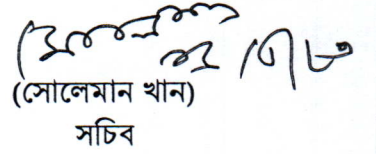 (সোলেমান খান)
সচিব